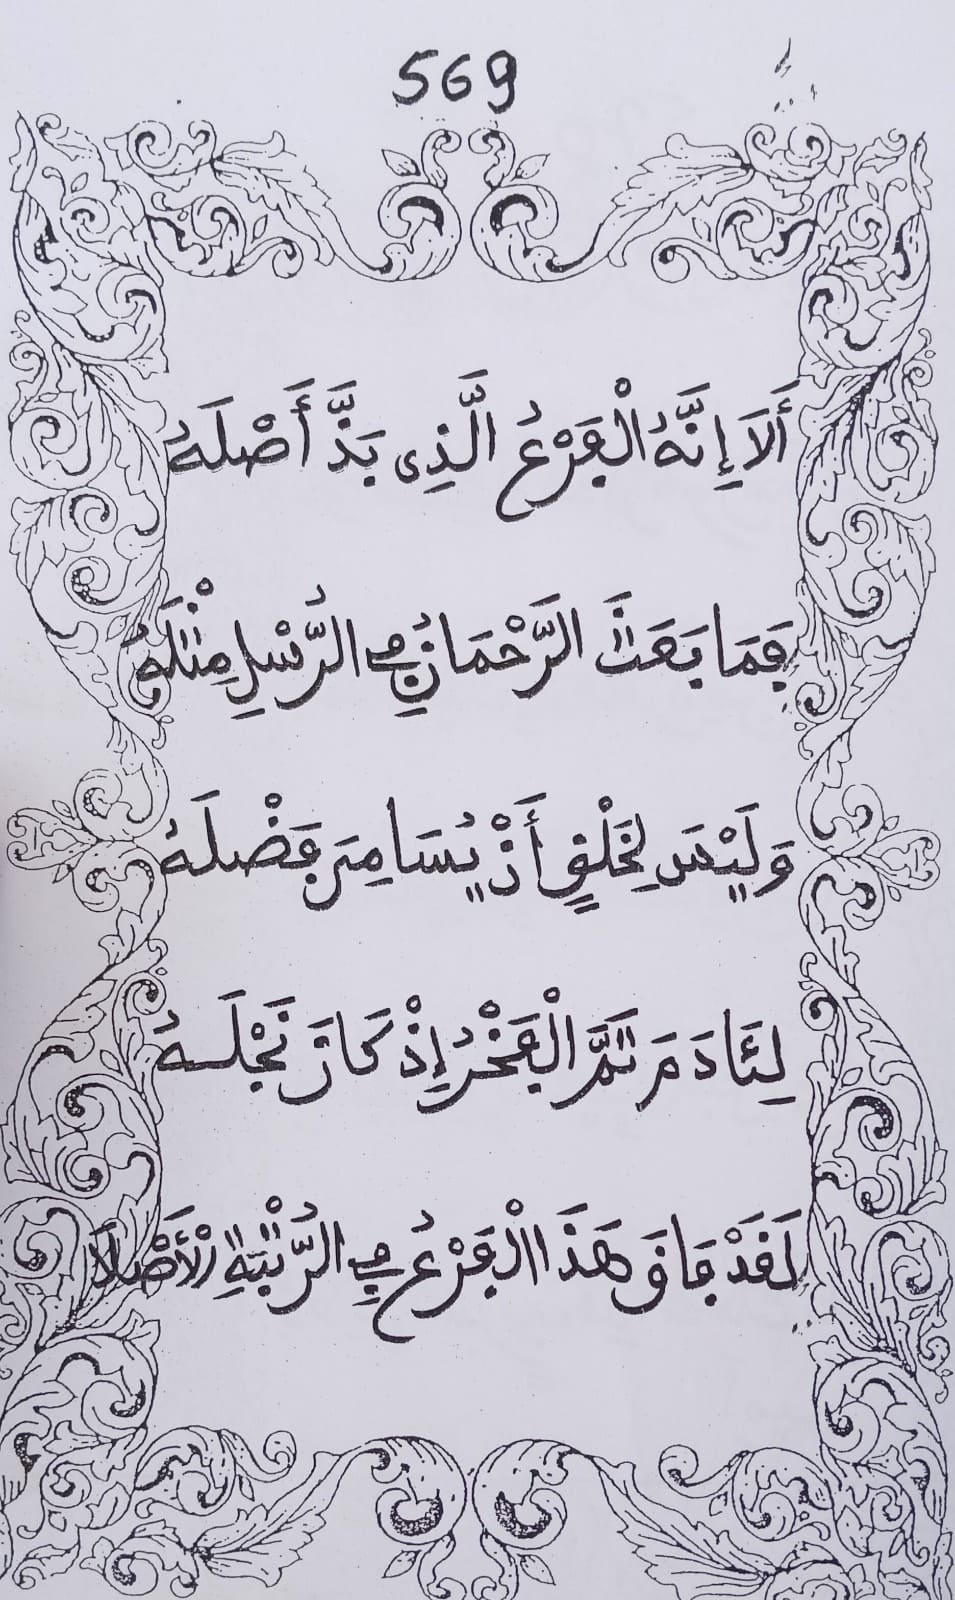 569
أَلَا إِنَّهُ الْفَرْعُ الَّذِي بَذَّ أَصْلَهُ
فَمَا بَعَثَ الرَّحْمَانُ فِي الرُّسْلِ مِثْلَهُ
وَلَيْسَ لِخَلْقٍ أَنْ يُسَامِيَ فَضْلَهُ
لِئَادَمَ تَمَّ الْفَخْرُ إِذْ كَانَ نَجْلَهُ
لَقَدْ فَاقَ هَذَا الْفَرْعُ فِي الرُّتْبَةِ الْأَصْلَا